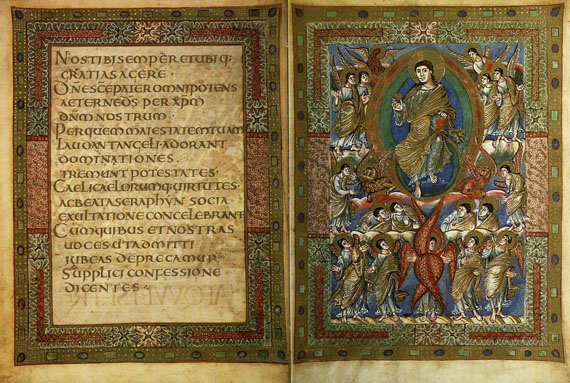 NOSTIBISEMPERETUBIQ;
GRATIAS AGERE·
DNESCEPATEROMNIPOTENS
AETERNEDS· PER XPM
DNMNOSTRUM·
PERQUEMMAIESTATEMTUAM
LAUDANTANGELI·ADORANT
DOMINATIONES,
TREMUNT POTESTATES·
CAELICAELORUMQUIRTUTES·
ACBEATASERAPHYN SOCIA
EXULTATIONE CONCELEBRANT
CUMQUIBUS ETNOSTRAS
UOCES UTADMITTI
IUBEAS DEPRECAMUR·
SUPPLICI CONFESSIONE
DICENTES·